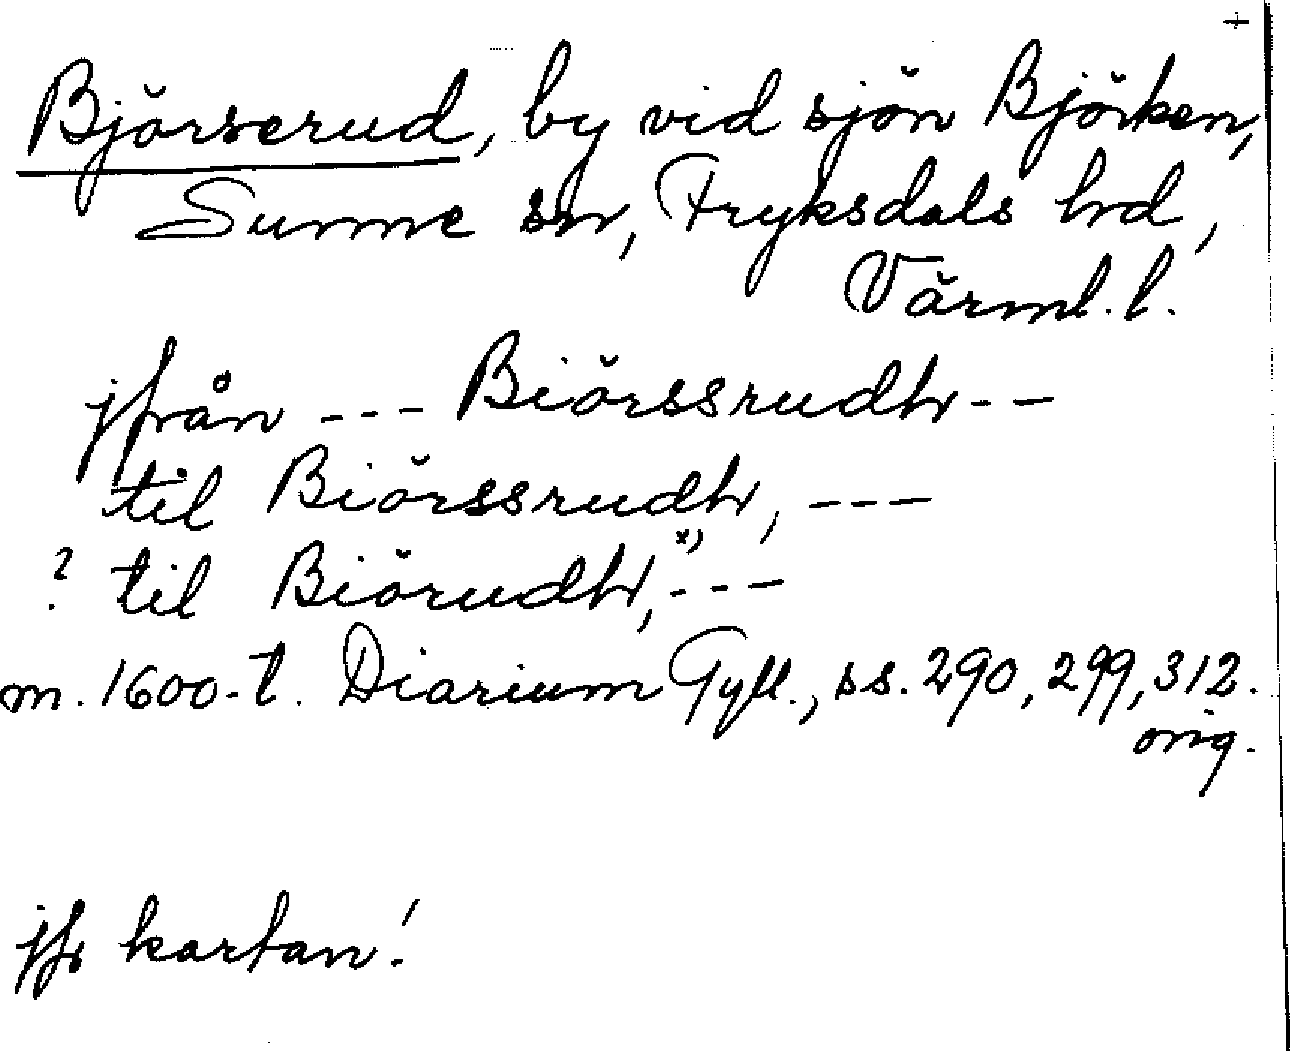 +
Björserud, by vid sjön Björken,
Sunne sn, Fryksdals hd,
Värml. l.
jfrån --- Biörssrudh --
til Biörssrudh, ---
? til Biörudh, x) ---
m. 1600-t. Diarium Gyll., ss. 290, 299, 312.
orig.
jfr kartan!